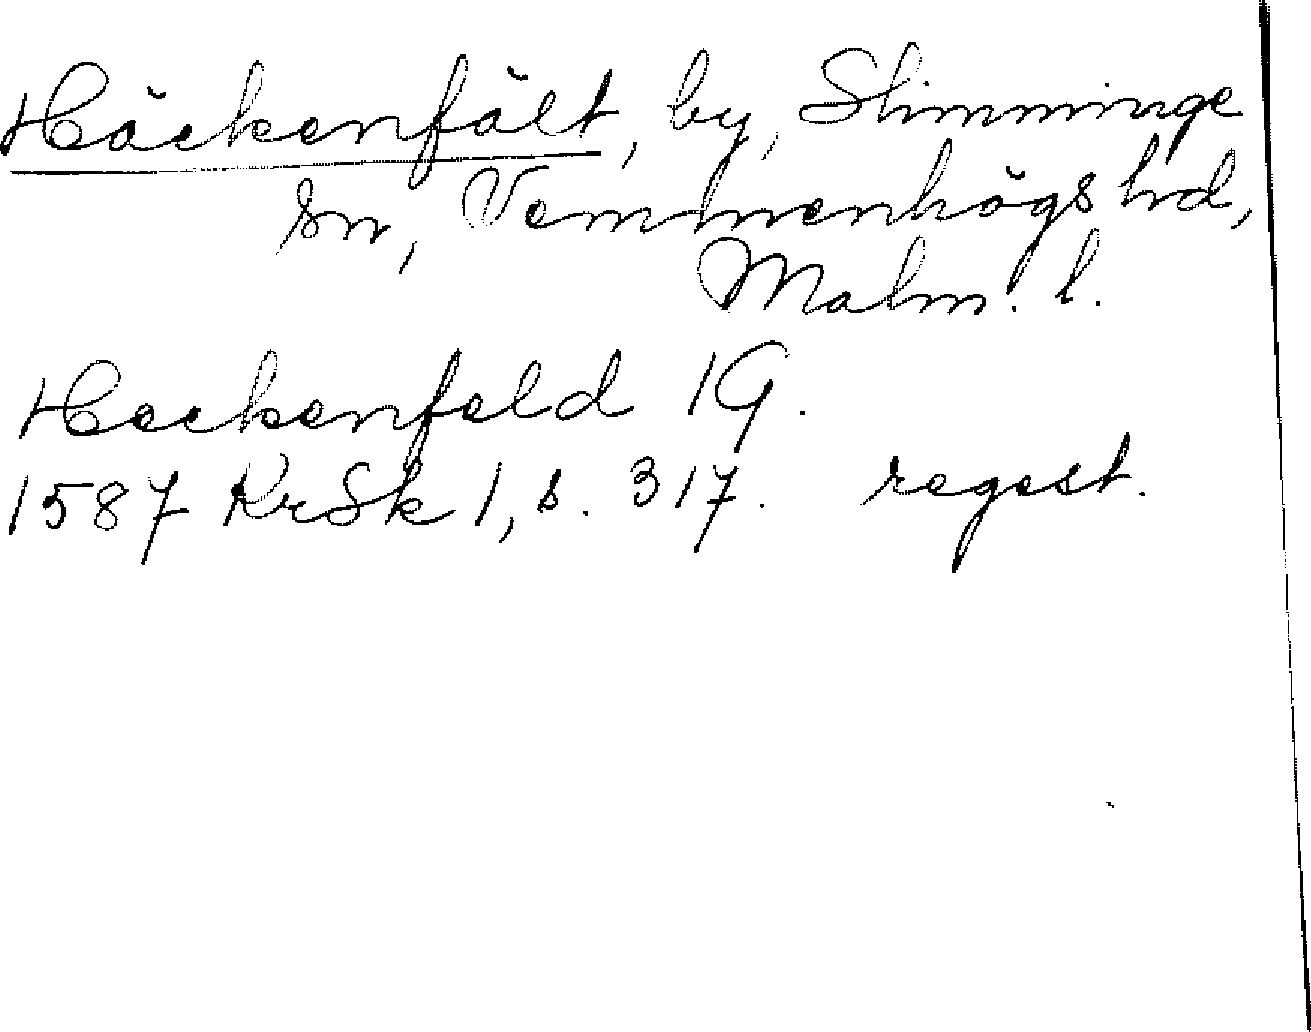 Häckenfält, by, Slimminge
sn, Vemmenhögs hd,
Malm. l.
Heckenfeld 1G.
1587 KrSk 1, s. 317. regest.